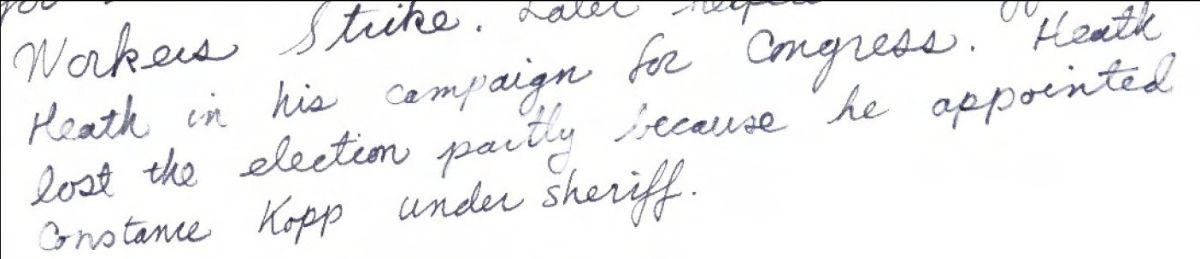 Workers Strike. Later helped
Heath in his campaign for Congress. Heath
lost the election partly because he appointed
Constance Kopp under sheriff.